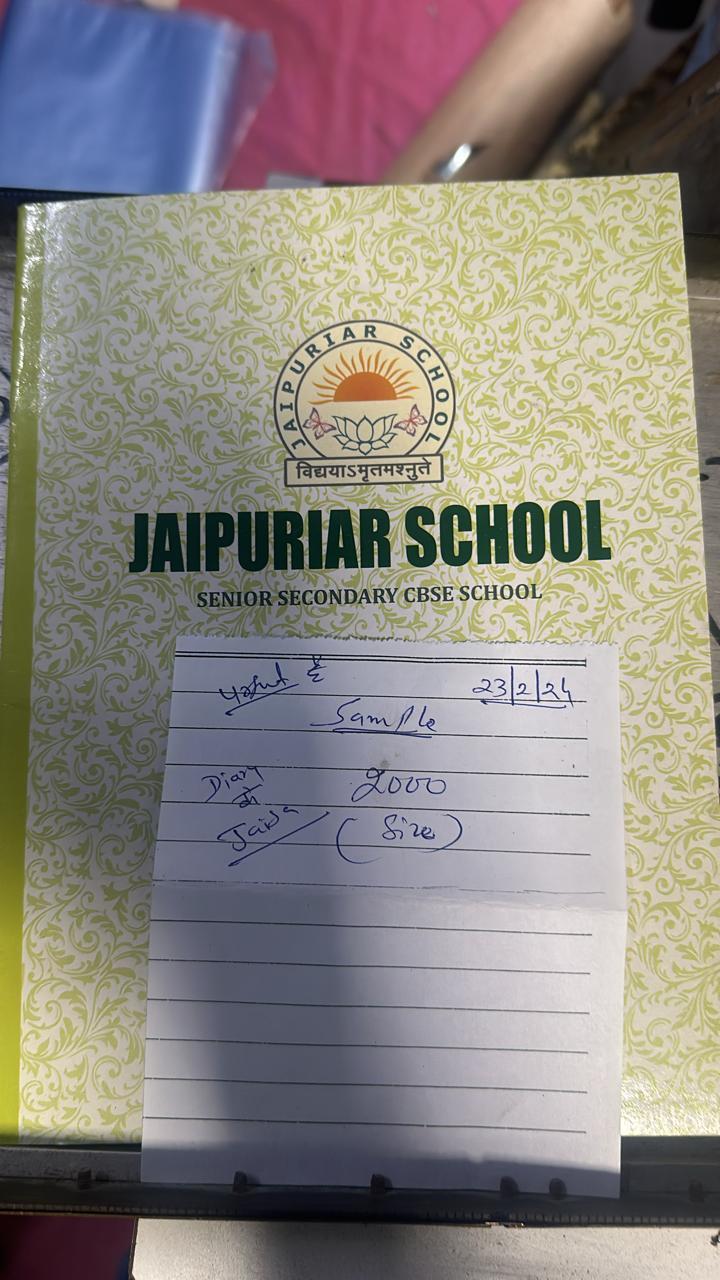 JAIPURIAR SCHOOL
विद्ययाऽमृतमश्नुते
JAIPURIAR SCHOOL
SENIOR SECONDARY CBSE SCHOOL
है 23/2/24
Sample
Diary 2000
(Size)